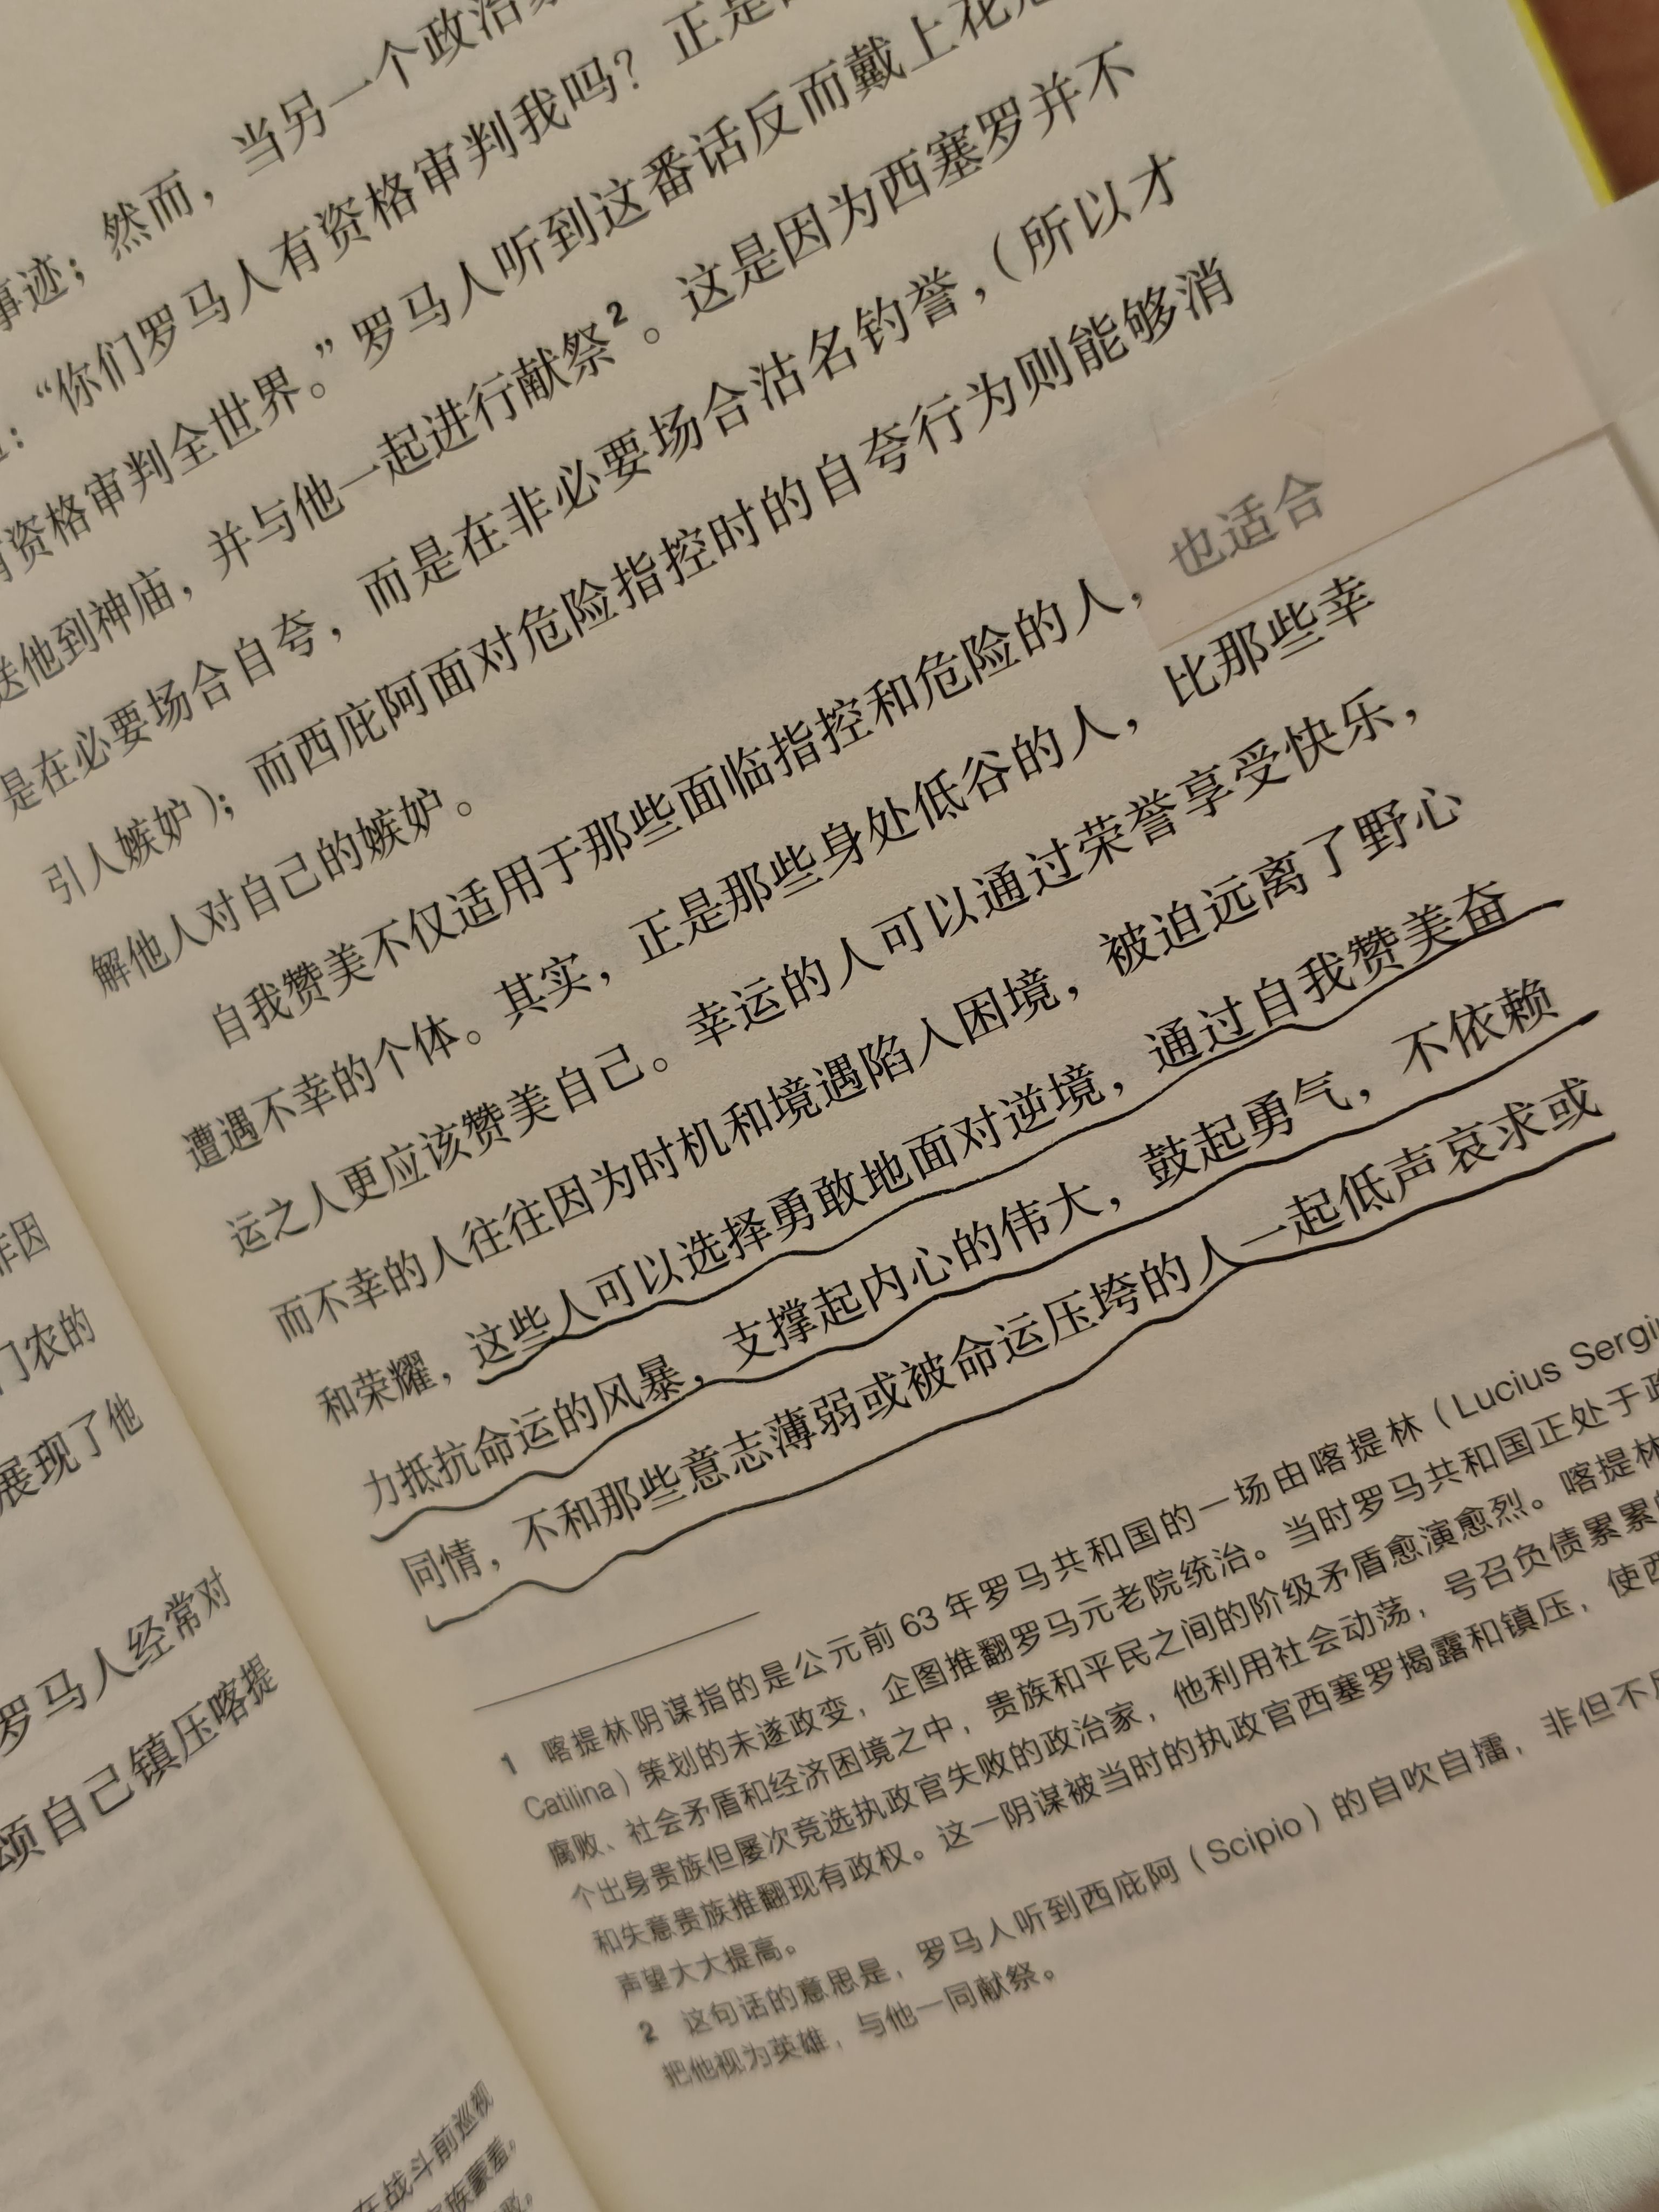 非因
门农的
展现了他
罗马人经常对
颂自己镇压喀提
在战斗前巡视
家族蒙羞。
当另一个政治
事迹；然而，
“你们罗马人有资格审判我吗？正是
资格审判全世界。”罗马人听到这番话反而戴上花
送他到神庙，并与他一起进行献祭2。这是因为西塞罗并不
是在必要场合自夸，而是在非必要场合沽名钓誉，（所以才
引人嫉妒）；而西庇阿面对危险指控时的自夸行为则能够消
解他人对自己的嫉妒。
自我赞美不仅适用于那些面临指控和危险的人，也适合
遭遇不幸的个体。其实，正是那些身处低谷的人，比那些幸
运之人更应该赞美自己。幸运的人可以通过荣誉享受快乐，
而不幸的人往往因为时机和境遇陷入困境，被迫远离了野心
和荣耀，这些人可以选择勇敢地面对逆境，通过自我赞美奋
力抵抗命运的风暴，支撑起内心的伟大，鼓起勇气，不依赖
同情，不和那些意志薄弱或被命运压垮的人一起低声哀求或
1 喀提林阴谋指的是公元前 63 年罗马共和国的一场由喀提林（Lucius
Catilina）策划的未遂政变，企图推翻罗马元老院统治。当时罗马共和国正处于
腐败、社会矛盾和经济困境之中，贵族和平民之间的阶级矛盾愈演愈烈。喀提林
个出身贵族但屡次竞选执政官失败的政治家，他利用社会动荡，号召负债累累
和失意贵族推翻现有政权。这一阴谋被当时的执政官西塞罗揭露和镇压，使西
声望大大提高。
2 这句话的意思是，罗马人听到西庇阿（Scipio）的自吹自擂，非但不
把他视为英雄，与他一同献祭。